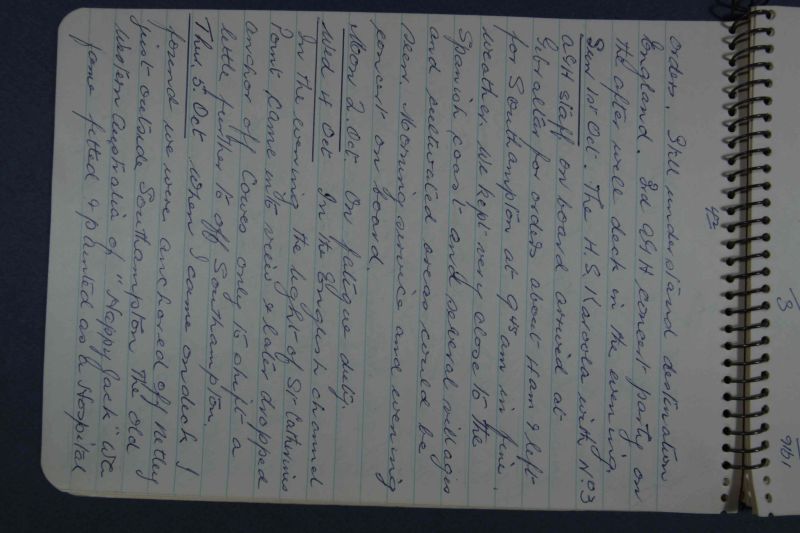 43
orders. Still understand destination
England. 3rd AGH concert party on
the after well deck in the evening
Sun 1st Oct. The H.S. Karoola with No 3
AGH staff on board arrived at
Gibralter for orders about 4 am & left
for Southampton at 9 45 am in fine
weather. We kept very close to the
Spanish coast and several villages
and cultivated areas could be
seen. Morning service and evening
concert on board.
Mon 2. Oct. On fatigue duty.
Wed 4 Oct In the English channel
In the evening the light of St Catherines
Point came into view & later dropped
anchor off Cowes only to shift a
little further to off Southampton.
Thur 5. Oct when I came on deck I
found we were anchored off Netley
just outside Southampton the old
Western Australia of "Happy Jack" WA
fame fitted & painted as a Hospital
3
1916